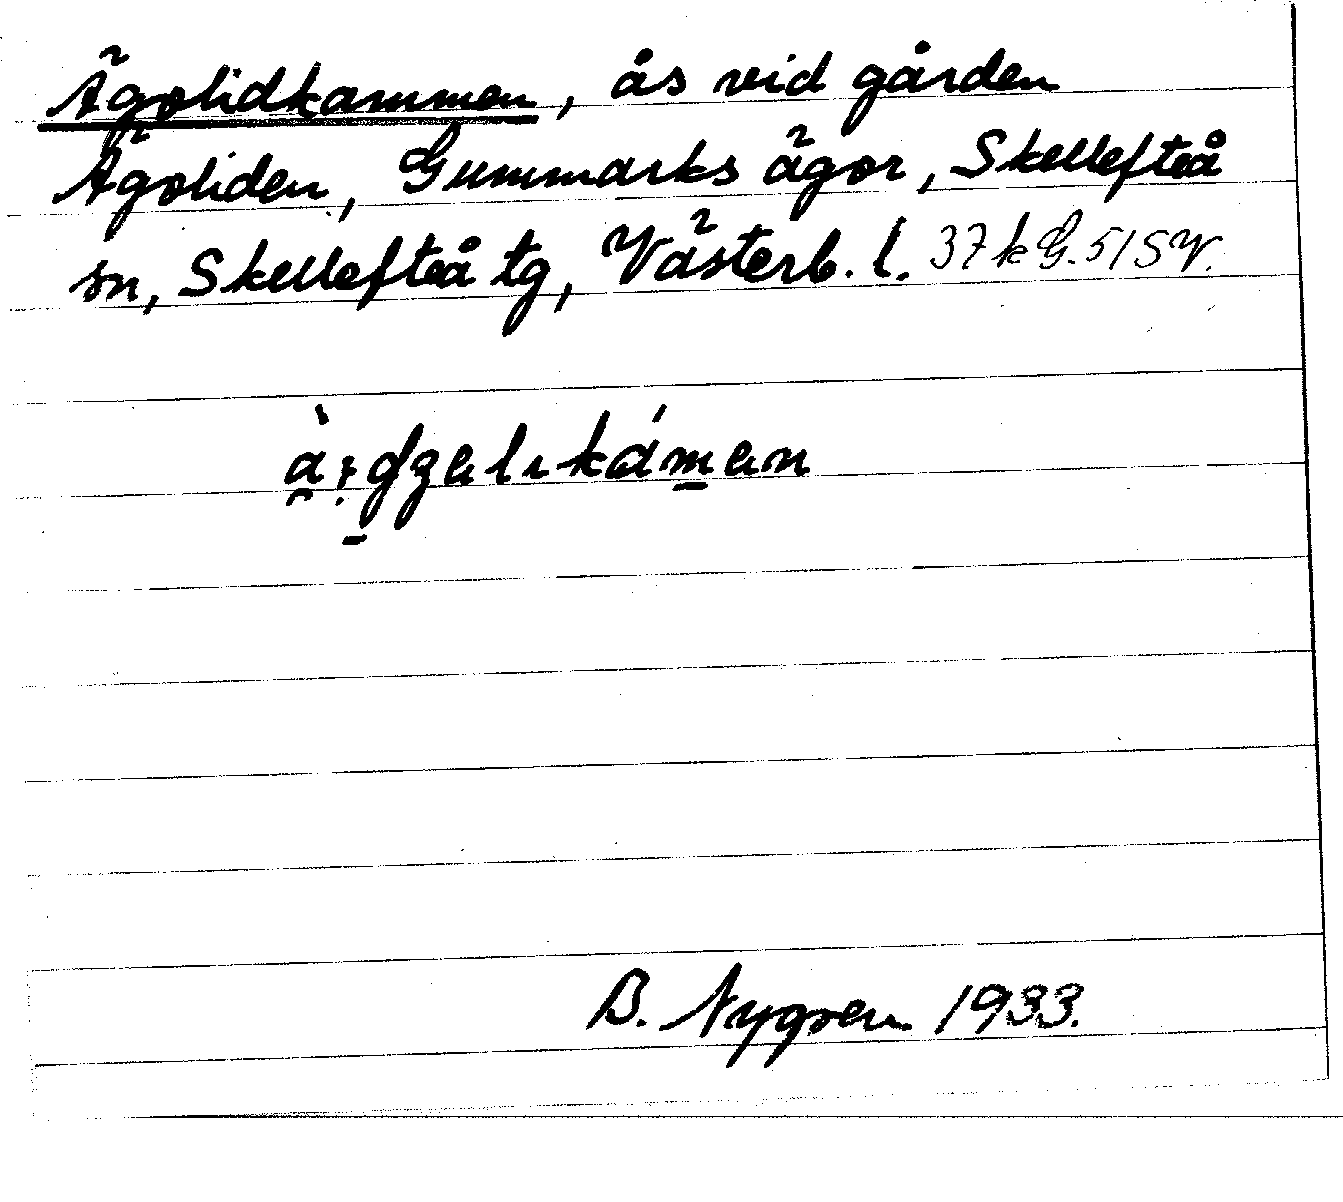 Ägolidkammen, ås vid gården
Ägoliden, Gummarks ägor, Skellefteå
sn, Skellefteå tg, Västerb. l. 37 k G. 5/5 V.
B. Nygren 1933.